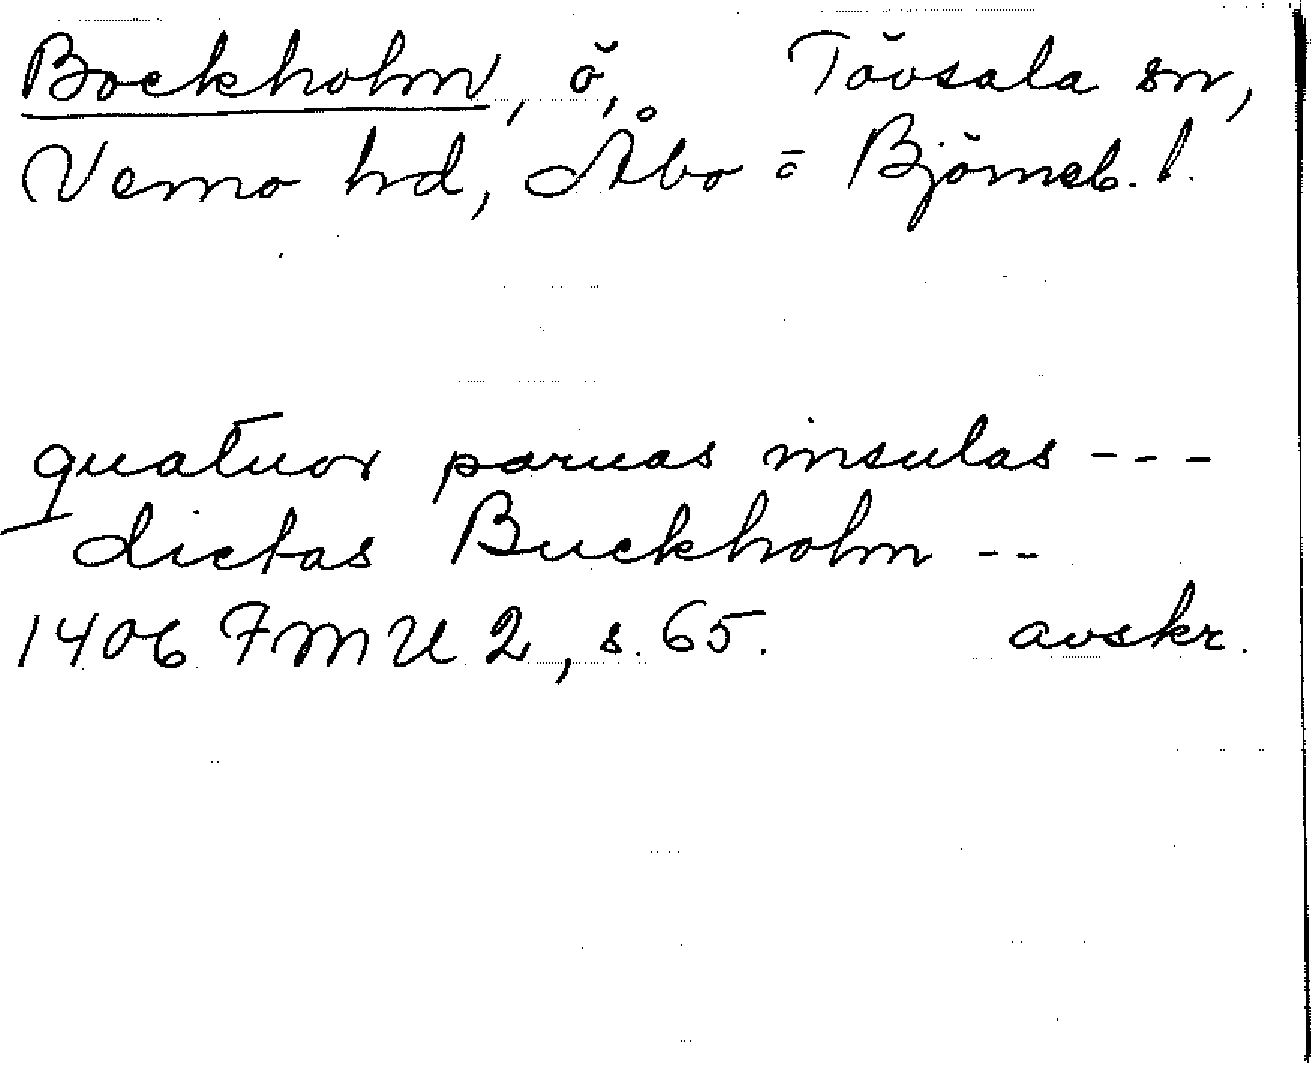 Bockholm, ö, Tövsala sn,
Vemo hd, Åbo = Björneb. l.
quatuor paruas insulas ---
dictas Buckholm --
1406 FMU 2, s. 65. avskr.